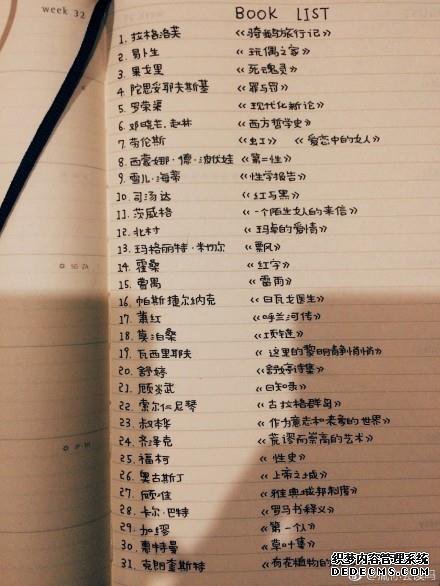 week 32
BOOK LIST
1. 拉格洛芙 《骑鹅旅行记》
2. 易卜生 《玩偶之家》
3. 果戈里 《死魂灵》
4. 陀思妥耶夫斯基 《罪与罚》
5. 罗荣渠 《现代化新论》
6. 邓晓芒、赵林 《西方哲学史》
7. 劳伦斯 《虹》 《爱恋中的女人》
8. 西蒙娜·德·波伏娃 《第二性》
9. 雪儿·海蒂 《性学报告》
10. 司汤达 《红与黑》
11. 茨威格 《一个陌生女人的来信》
12. 北村 《玛卓的爱情》
13. 玛格丽特·米切尔 《飘》
14. 霍桑 《红字》
15. 曹禺 《雷雨》
16. 帕斯捷尔纳克 《日瓦戈医生》
17. 萧红 《呼兰河传》
18. 莫泊桑 《项链》
19. 瓦西里耶夫 《这里的黎明静悄悄》
20. 舒婷 《舒婷诗集》
21. 顾炎武 《日知录》
22. 索尔仁尼琴 《古拉格群岛》
23. 叔本华 《作为意志和表象的世界》
24. 齐泽克 《荒谬而崇高的艺术》
25. 福柯 《性史》
26. 奥古斯丁 《上帝之城》
27. 顾准 《雅典城邦制度》
28. 卡尔·巴特 《罗马书释义》
29. 加缪 《第一个人》
30. 惠特曼 《草叶集》
31. 克朗奎斯特 《有花植物的
织梦内容管理系统
DEDECMS.COM